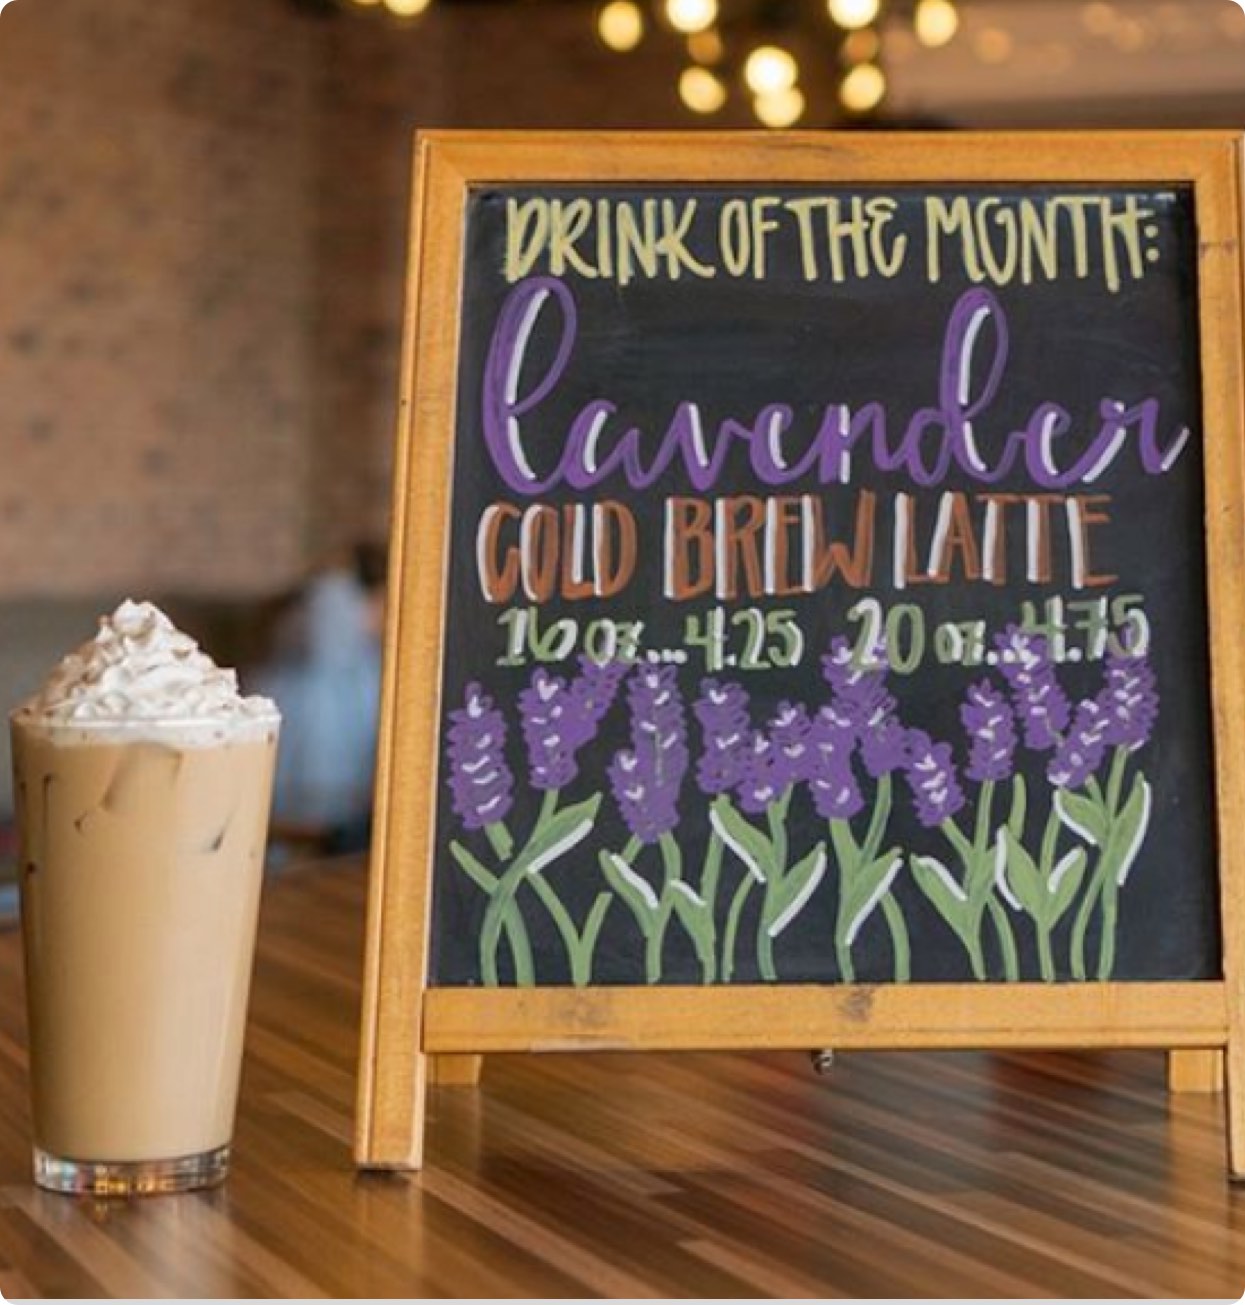 DRINK OF THE MONTH:
lavender
COLD BREW LATTE
16 oz...4.25 20 oz...4.75